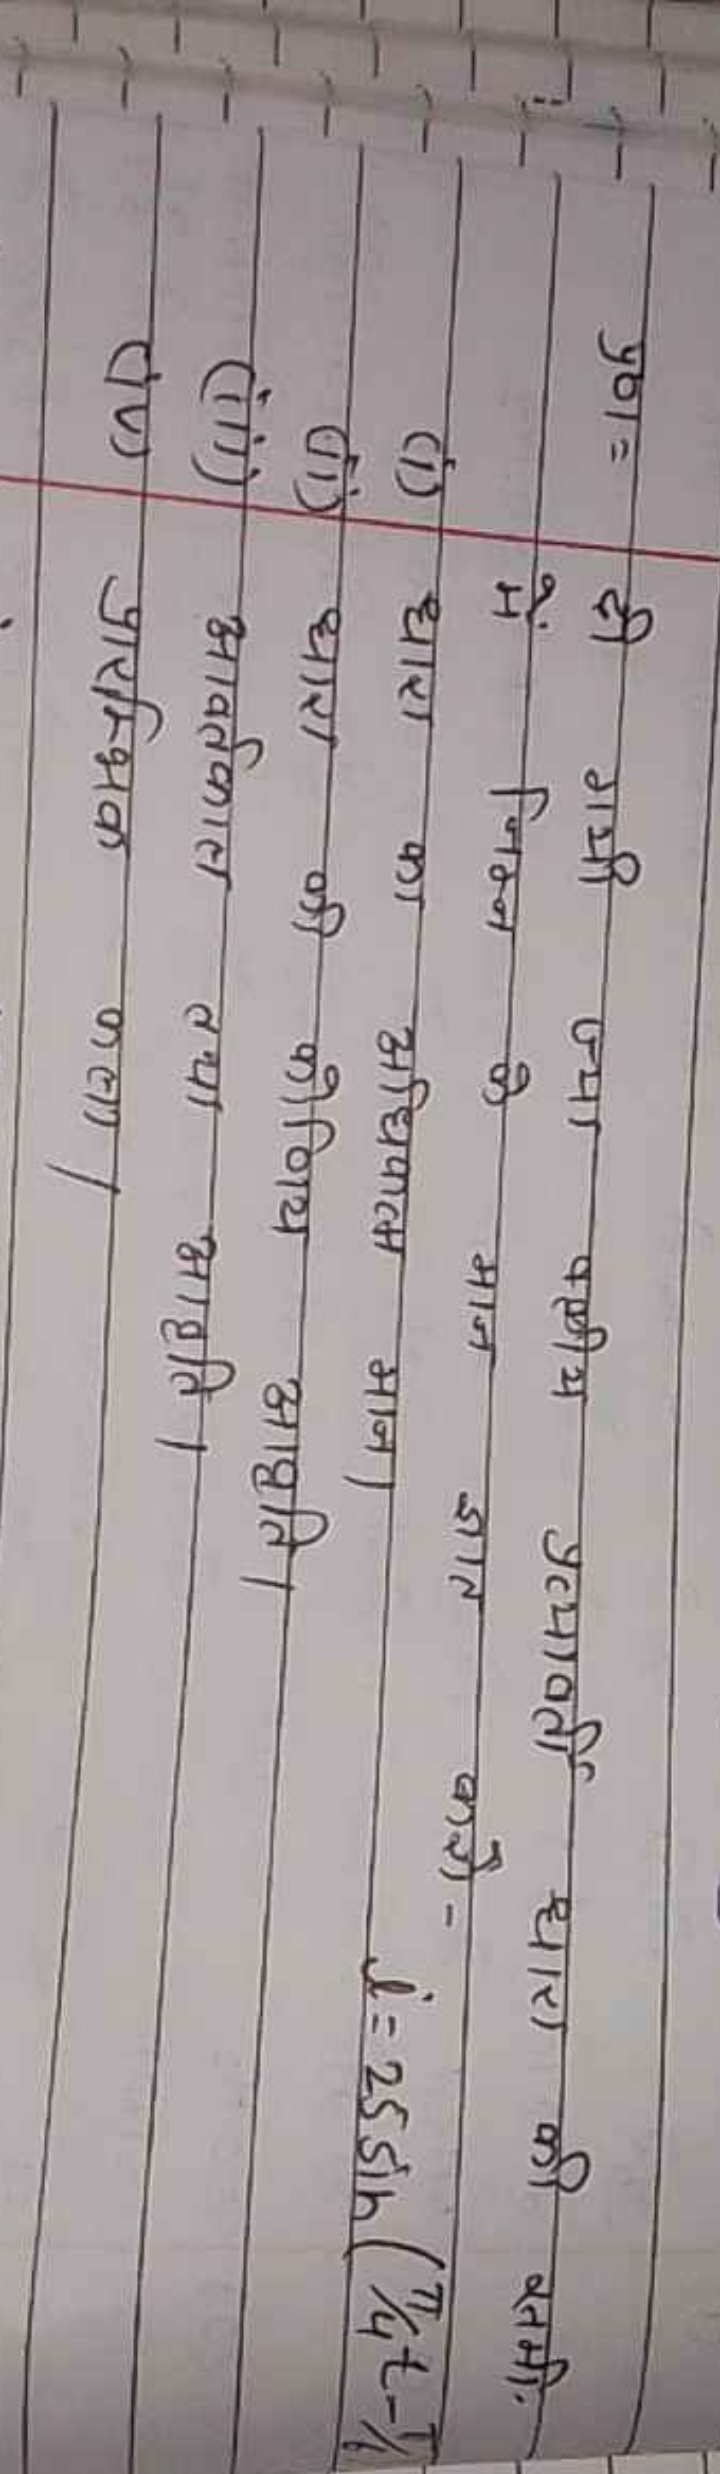 प्र०1= दी गयी ज्या वक्रीय प्रत्यावर्ती धारा की समी.
में निम्न के मान ज्ञात करो -
(i) धारा का अधिकतम मान। i = 25 sin (π/4 t - π/
(ii) धारा की कोणिय आवृति।
(iii) आवर्तकाल तथा आवृति।
(iv) प्रारम्भिक कला।